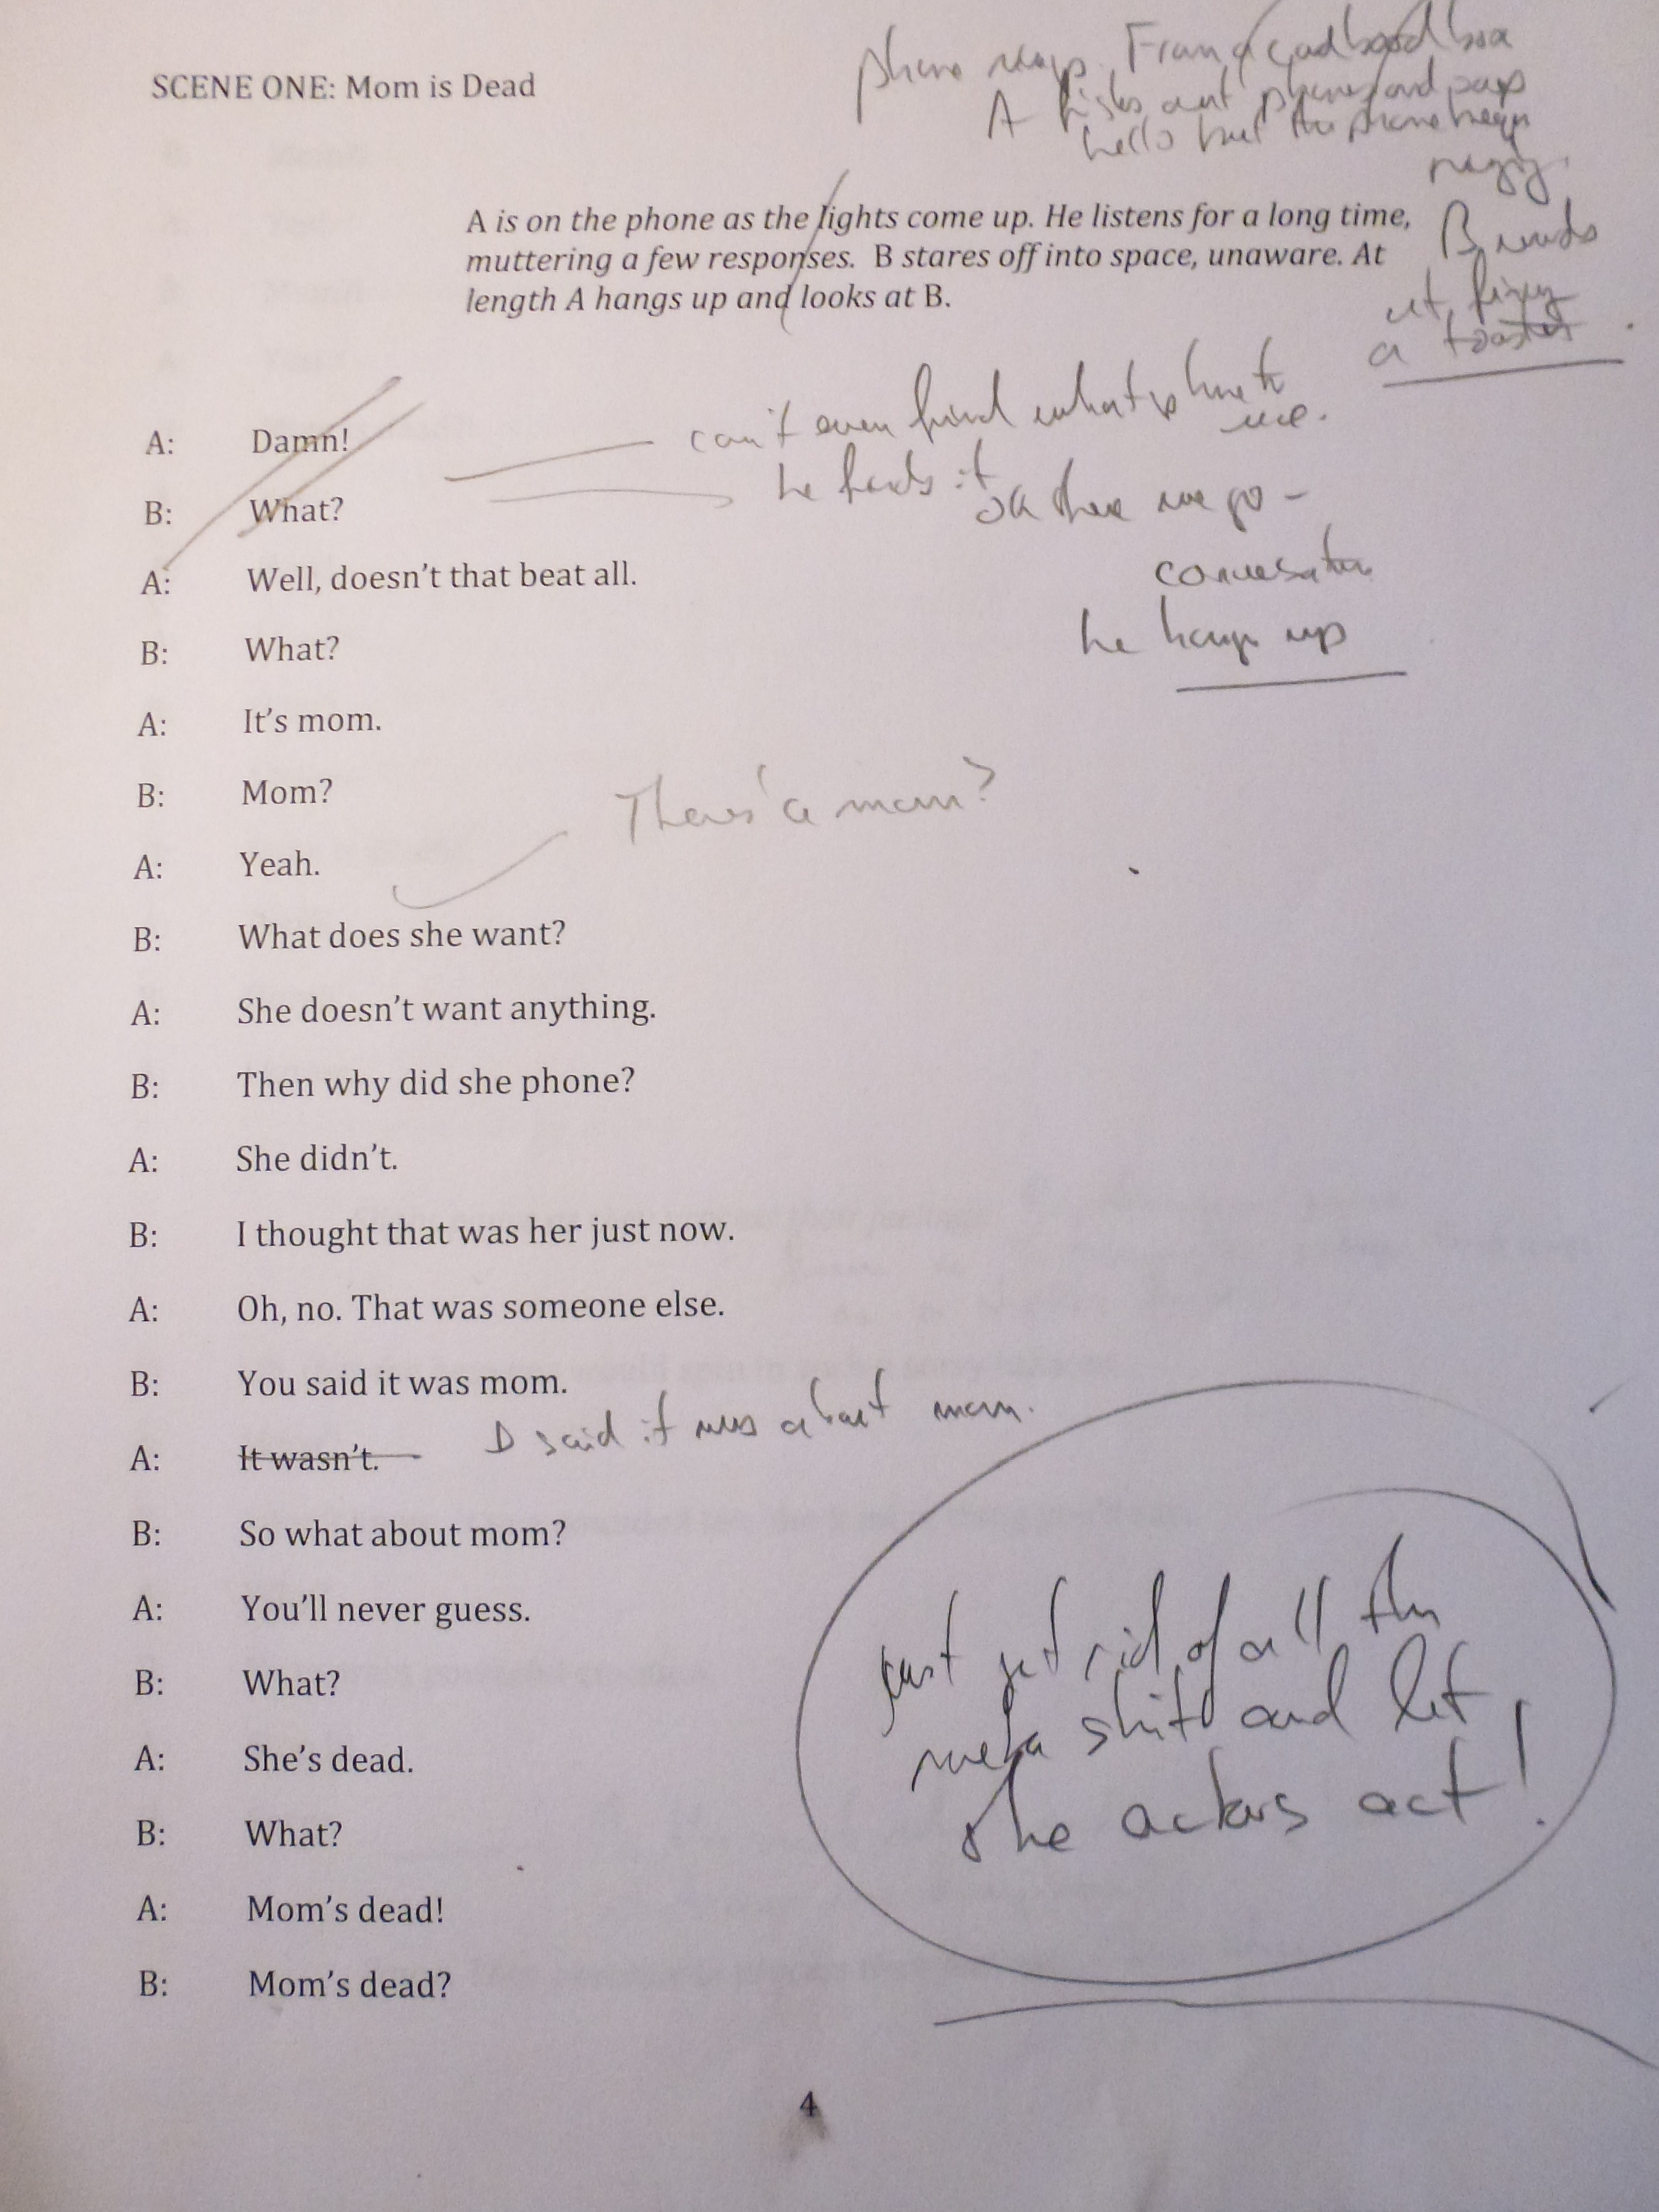 phone rings. From a cardboard box
A fishes out phone and says
hello but the phone keeps
ringing.
SCENE ONE: Mom is Dead
A is on the phone as the lights come up. He listens for a long time,
muttering a few responses. B stares off into space, unaware. At
length A hangs up and looks at B.
B
a toaster.
A: Damn!
can't even find what phone to
use.
B: What?
he finds it
ok there we go -
A: Well, doesn't that beat all.
conversation
B: What?
he hangs up
A: It's mom.
B: Mom?
There's a mom?
A: Yeah.
B: What does she want?
A: She doesn't want anything.
B: Then why did she phone?
A: She didn't.
B: I thought that was her just now.
A: Oh, no. That was someone else.
B: You said it was mom.
A: It wasn't.
I said it was about mom.
B: So what about mom?
A: You'll never guess.
B: What?
A: She's dead.
B: What?
A: Mom's dead!
B: Mom's dead?
just get rid of all this
meta shit and let
the actors act!
4